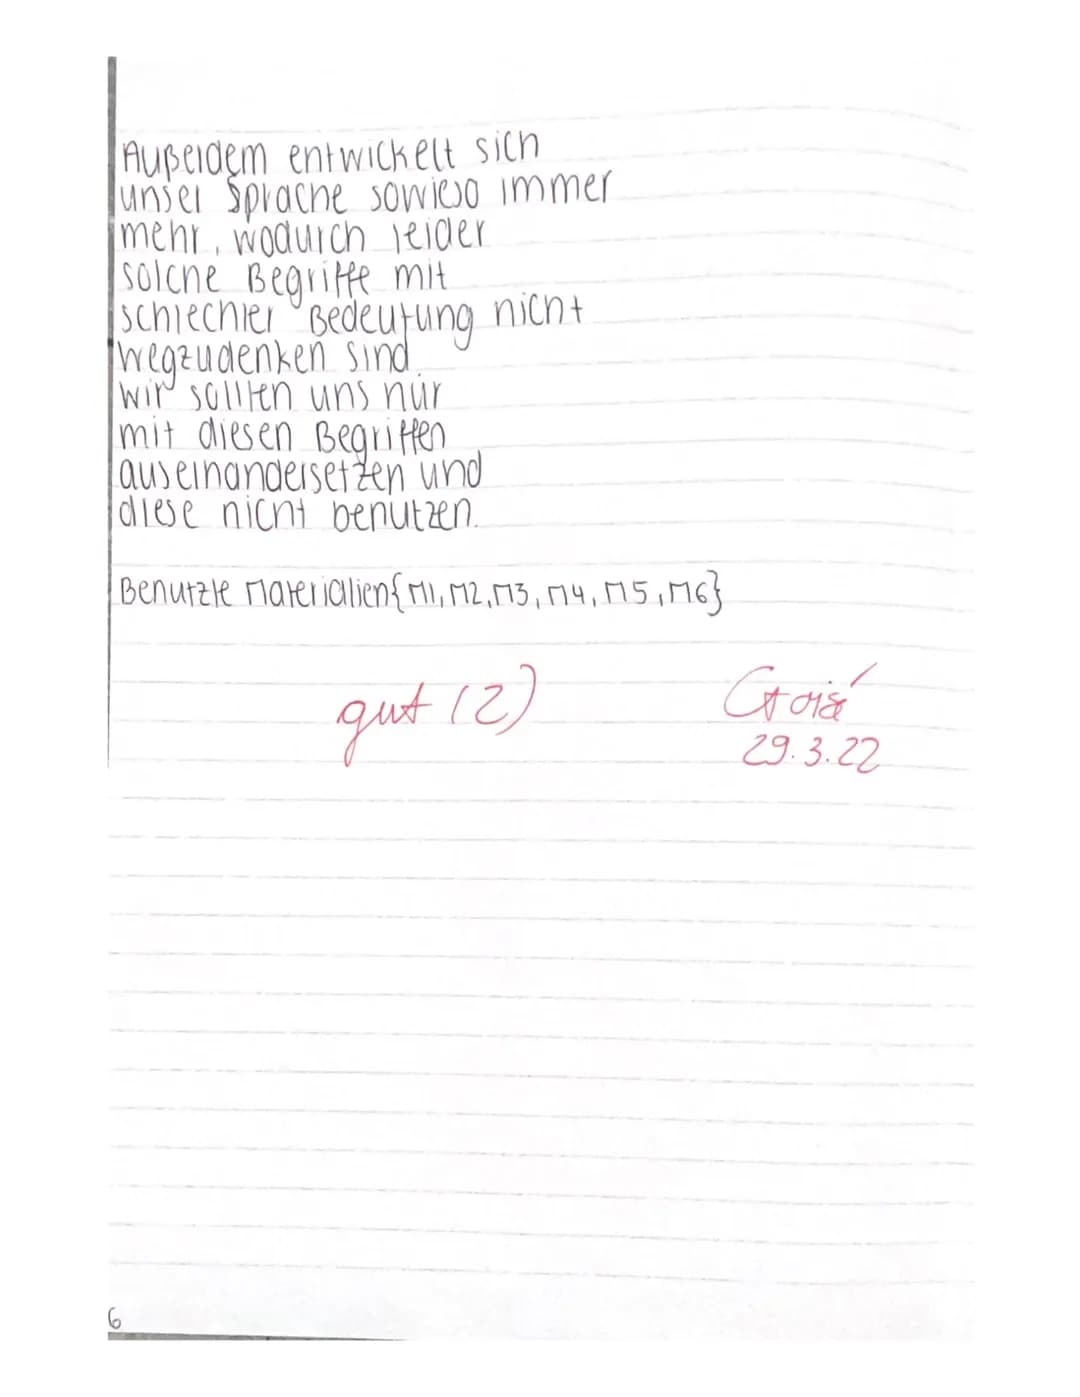 Außerdem entwickelt sich
unser Sprache sowieso immer
mehr, wodurch leider
solche Begriffe mit
schlechter Bedeutung nicht
wegzudenken sind.
Wir sollten uns nur
mit diesen Begriffen
auseinandersetzen und
diese nicht benutzen.
Benutzte Materialien{M1, M2, M3, M4, M5, M6}
gut (2)
29.3.22
6